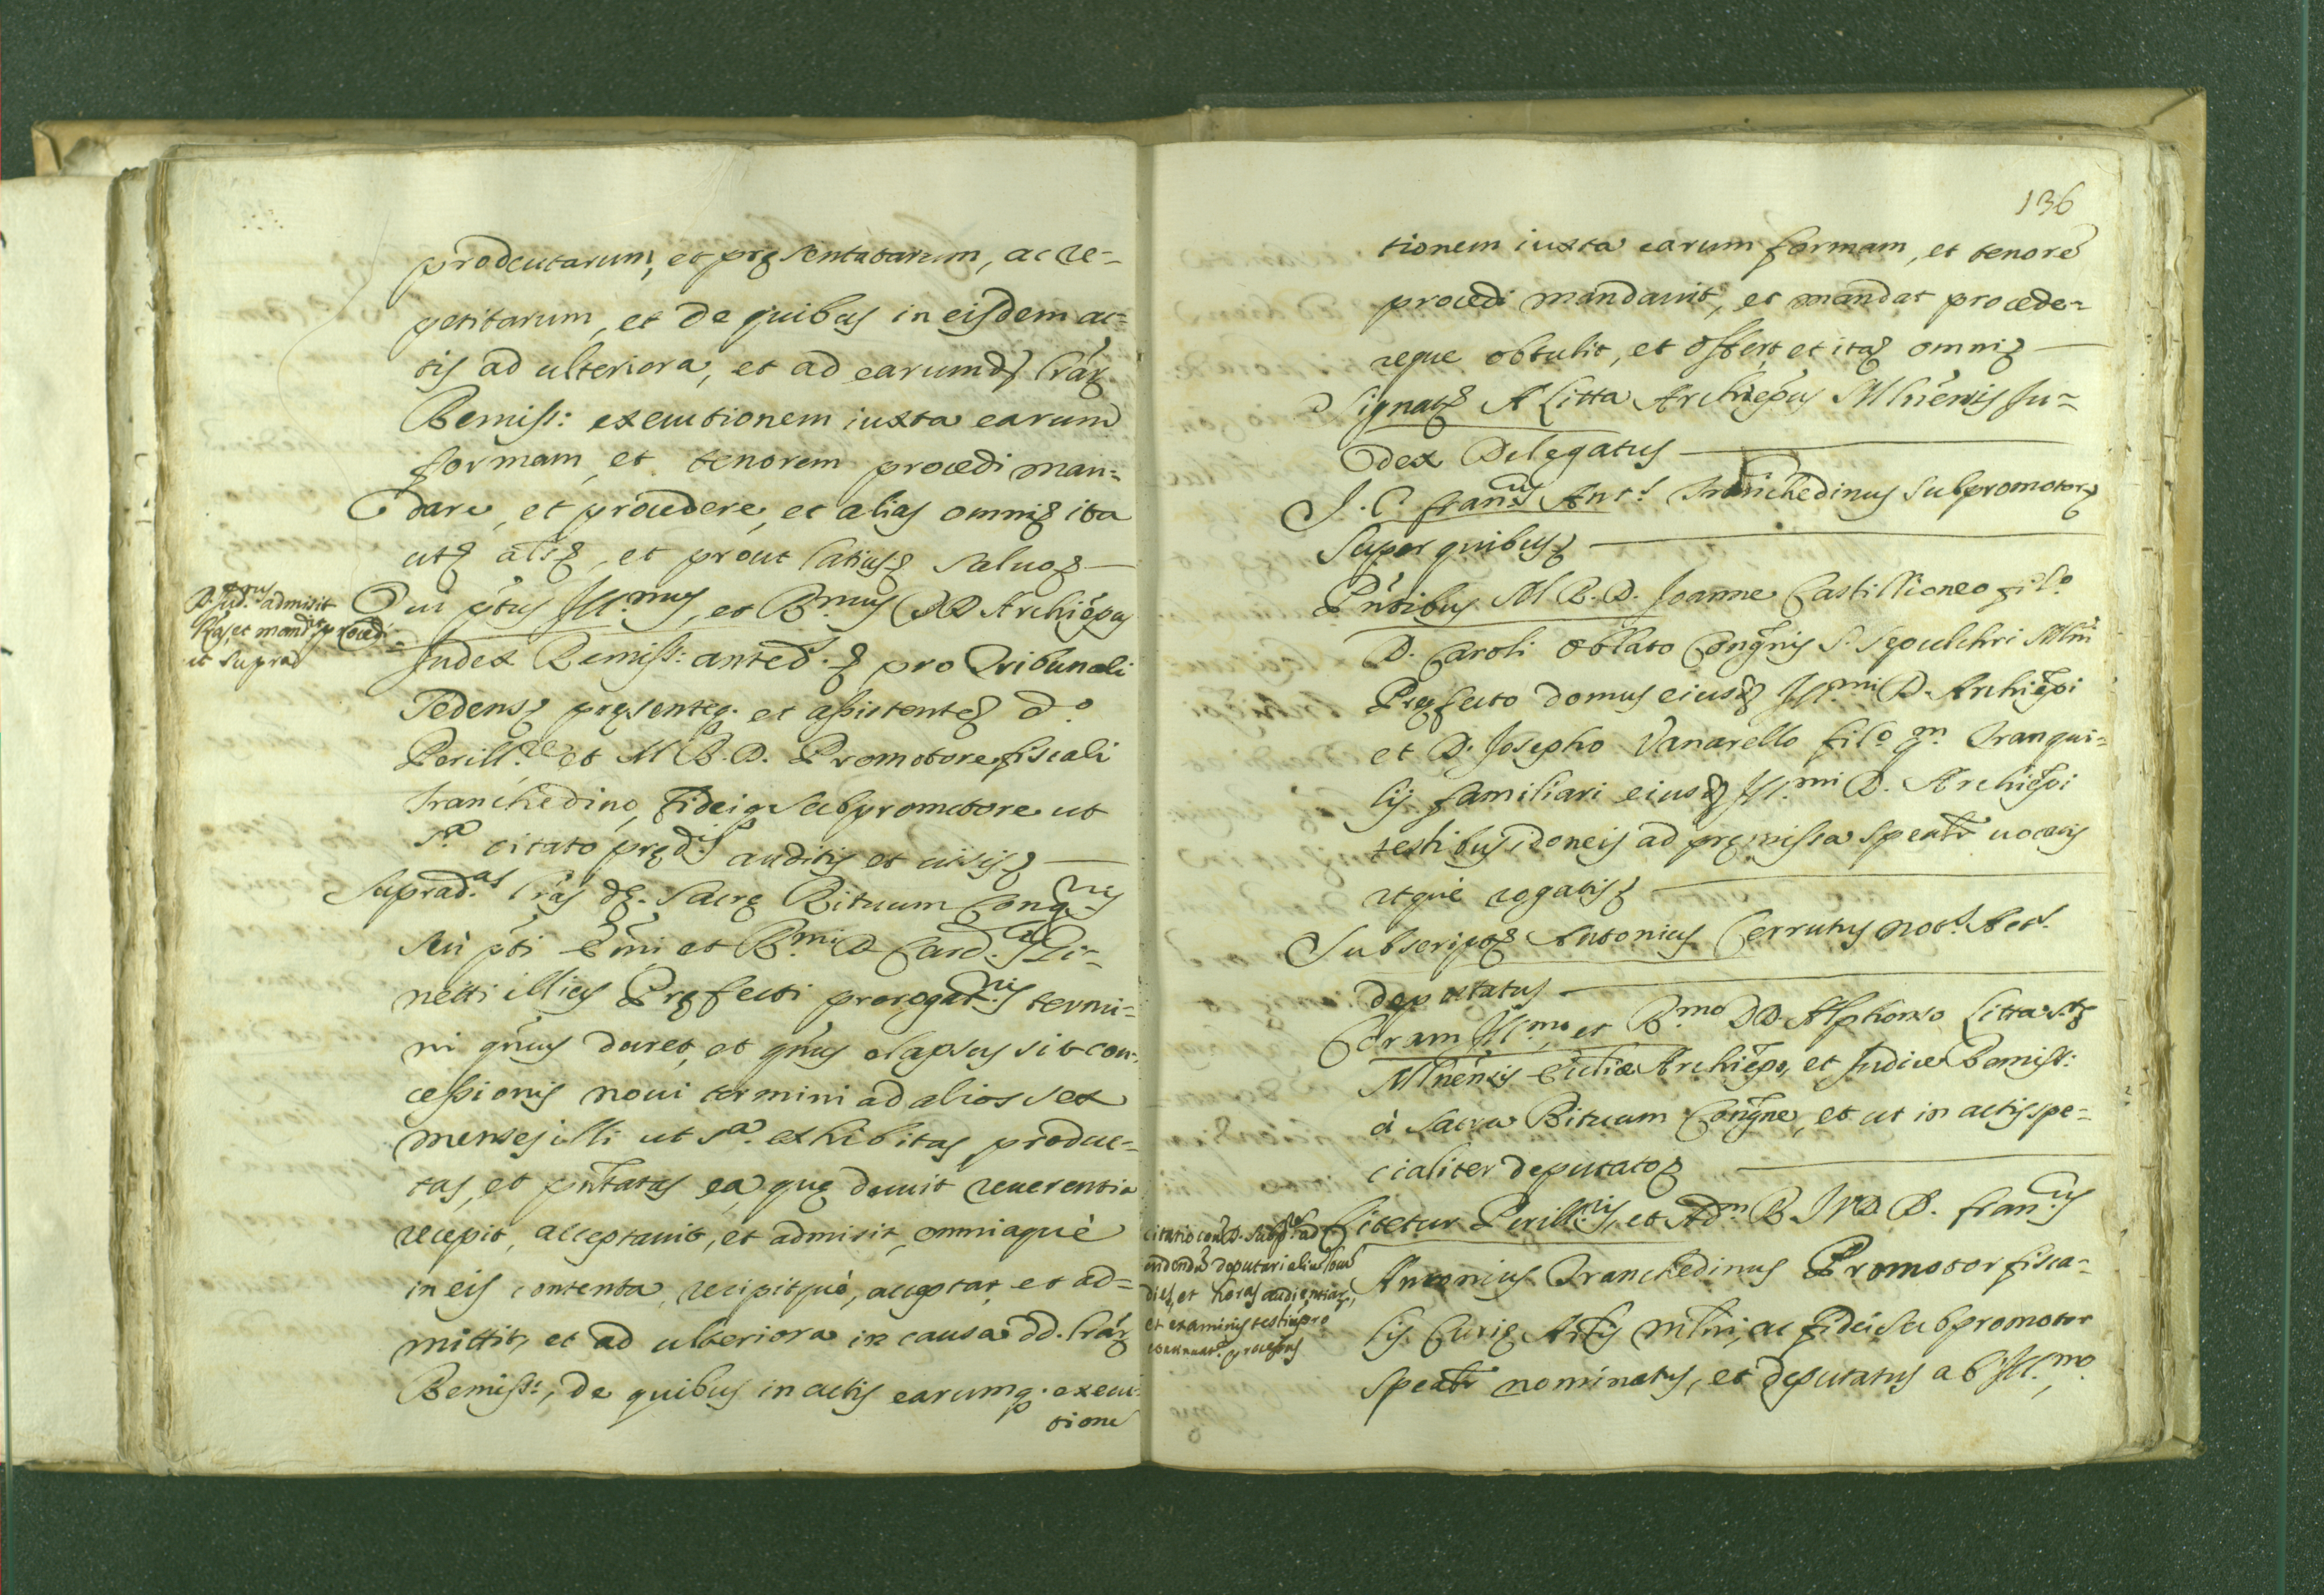 productarum, et pręsentatarum, ac re-
petitarum, et de quibus in eisdem ac-
tis ad ulteriora, et ad earumd. lrar.
Remiss: executionem iuxta earum
formam, et tenorem procedi man-
dare, et procedere, et alias omni ita
et prout latius saluo
D. Jud. admisit
lras et mand. procedi
ut supra
Qui ptus Ill.mus, et R.mus DD Archiepus
Judex Remiss: anted. pro Tribunali
Sedens pręsenteq. et assistente d.o
Perill.re et M. R. D. Promotore fiscali
Tranchedino, fideiq. Subpromotore ut
s.a citato pręd.is auditis et uisis
Suprad.as lras Sacrę Rituum Cong.nis
seu pti Emi, et R.mi D Card.
netti illius Pręfecti prorogat.nis termi-
ni qtus duret, et qtus elapsus sit con-
cessionis noui termini ad alios sex
menses illi ut s.a exhibitas, produc-
tas, et pntatas ea, quę decuit reuerentia
recepit, acceptauit, et admisit, omniaquè
in eis contenta, recipitquè, acceptat, et ad-
mittit, et ad ulteriora in causa dd. lrar.
Remiss:, de quibus in actis earumq. execu-
tione
136
tionem iuxta earum formam, et tenore
procedi mandauit, et mandat procede-
reque obtulit, et offert et ita omni
Signat A Litta Archiepus Mlnensis Ju-
dex Delegatus
J. C. Fran.us Ant.s Tranchedinus Subpromotor
Super quibus
Pntibus M R. D. Joanne Castillioneo fil.o
D. Caroli Oblato Congnis S. Sepulchri Mlni
Pręfecto domus eiusd. Ill.mi D. Archiepi
et D. Josepho Vanarello fil.o qm. Tranqui-
lij familiari eiusd. Ill.mi D. Archiepi
testibus idoneis ad pręmissa speatr uocatis
atque rogatis
Subscript Antonius Cerrutus not.s Act.s
deputatus
Coram Ill.mo, et R.mo DD. Alphonso Litta
Mlnensis Ecclię Archiepo, et Judice Remiss:
à Sacra Rituum Congne, et ut in actis spe-
cialiter deputato
citatio
dies, et horas audientiar,
et examinis testium pro
Citetur Perill.ris, et Adm. R. J V D D. Fran.us
Antonius Tranchedinus Promotor fisca-
lis Curię Archlis Mlni, ac fidei Subpromotor
speatr nominatus, et deputatus ab Ill.mo